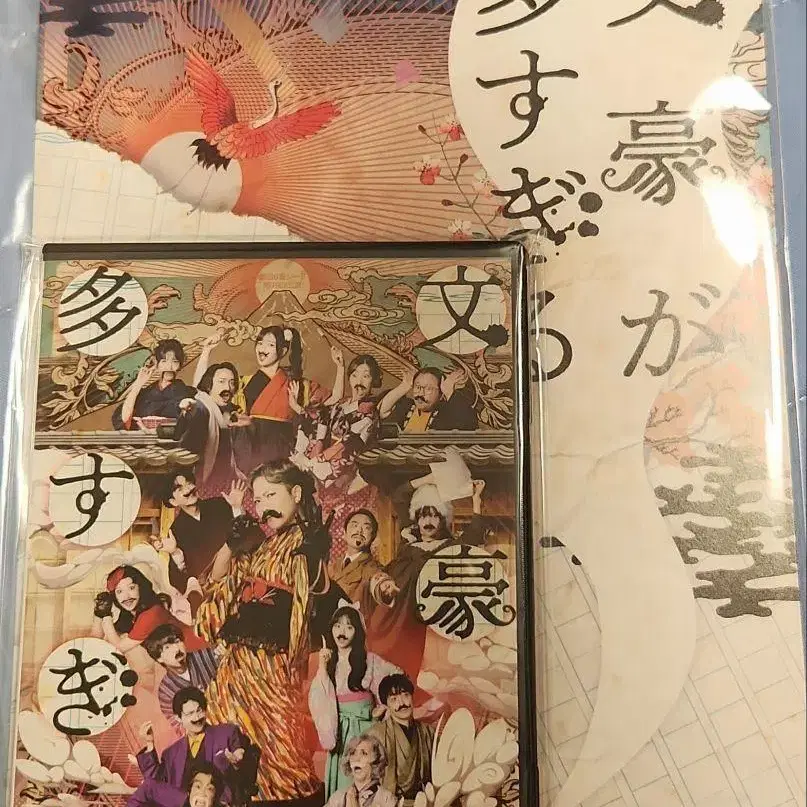 文豪が
多すぎる
文豪
多すぎ